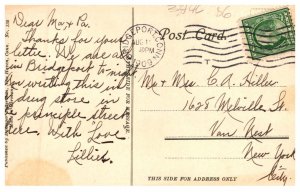 Dear Ma & Pa.
Thanks for your
letter. We are all
in Bridgeport to night
am writing this in
a drug store in
the principle street
here. With Love
Lillie.
BRIDGEPORT, CONN.
PM
Post Card.
Mr & Mrs C. A. Hiller
1625 Melville St.
Van Nest
New York
City.
THIS SIDE FOR ADDRESS ONLY